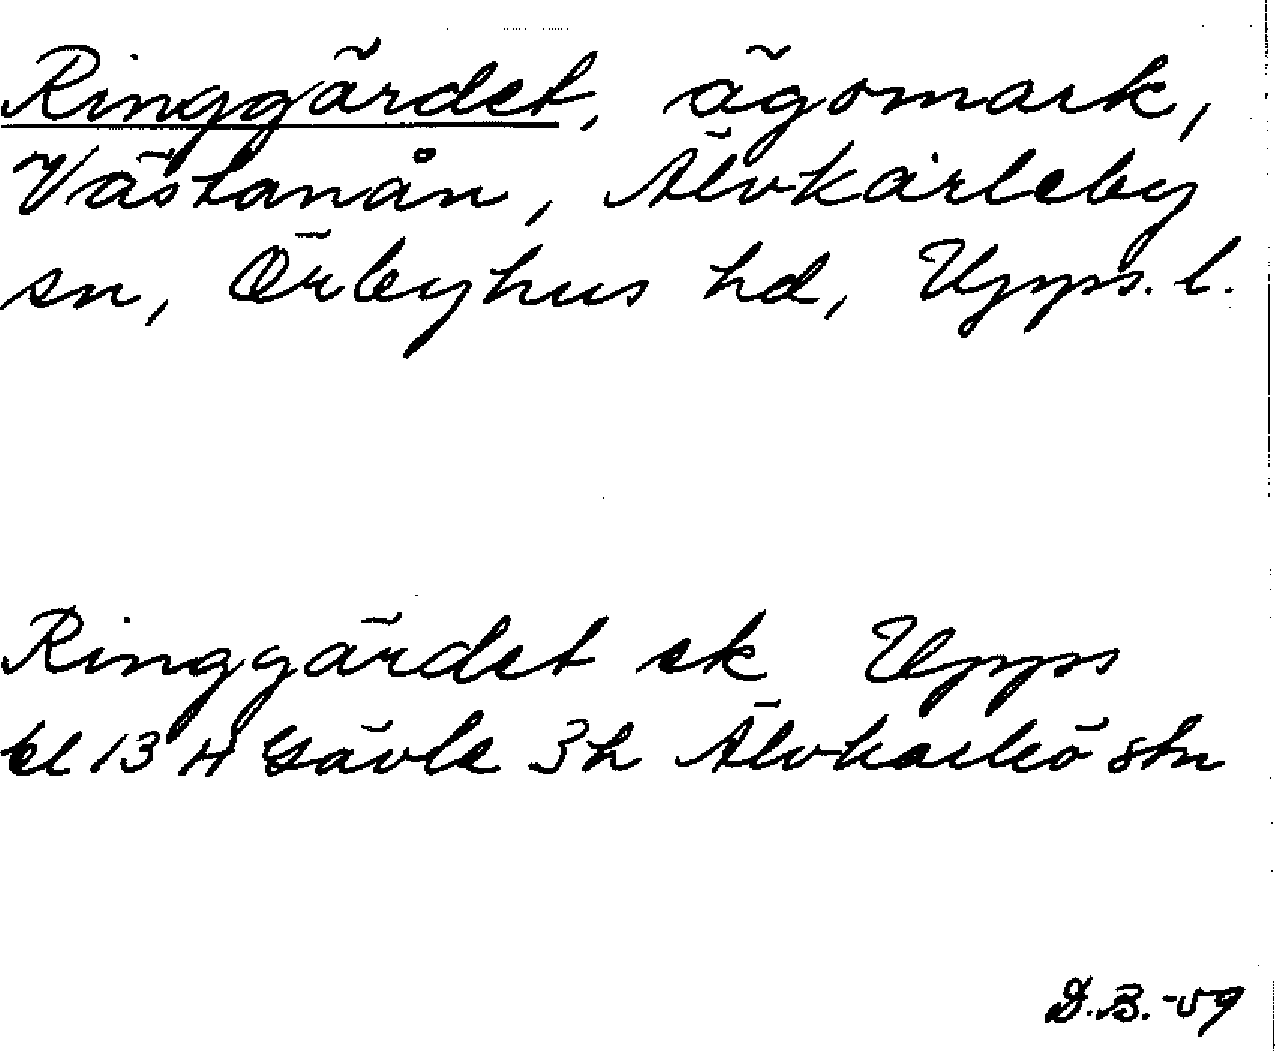 Ringgärdet, ägomark,
Västanån, Älvkarleby
sn, Örbyhus hd, Upps. l.
Ringgärdet ek Upps
bl 13 H Gävle 3h Älvkarleö stn
D.B. -59